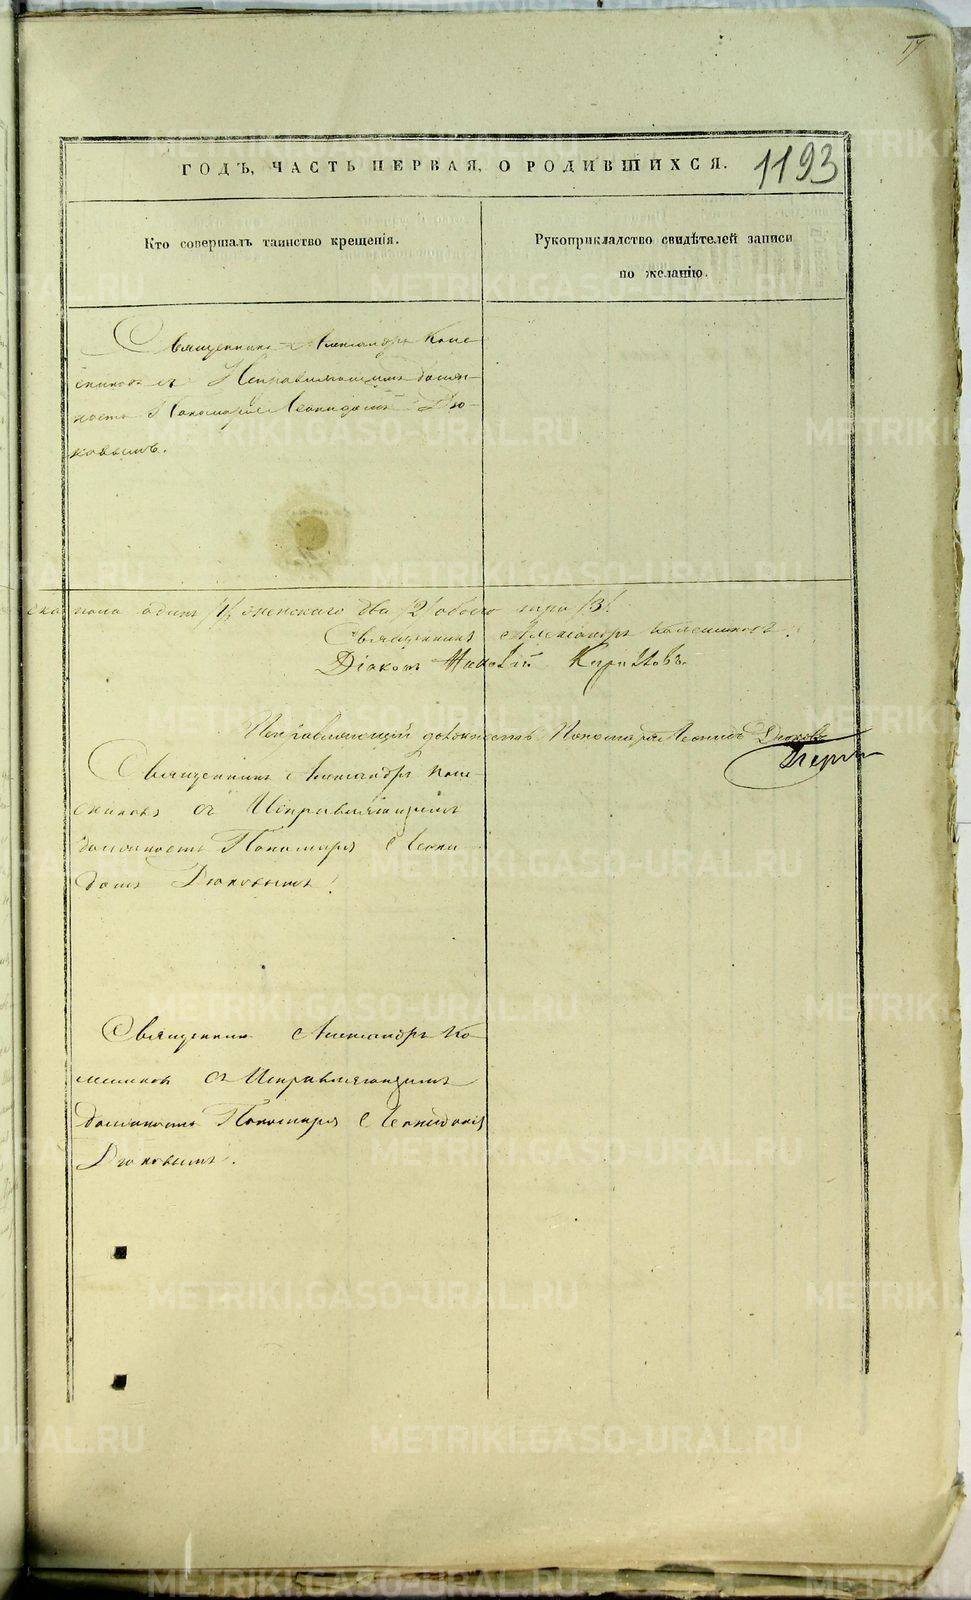 17
ГОДЪ, ЧАСТЬ ПЕРВАЯ, О РОДИВШИХСЯ.
1193
Кто совершалъ таинство крещенія.
Рукоприкладство свидѣтелей записи
по желанію.
Священникъ Александръ Коле
сниковъ съ Исправляющимъ долж
ность Пономаря Леонидомъ Дю
ковымъ.
ска пола одинъ /1/ женскаго два /2/ обоего три /3/.
Священникъ Александръ Колесниковъ.
Діаконъ
Исправляющій должность Пономаря Леонидъ Дюковъ
Священникъ Александръ Коле
сниковъ съ Исправляющимъ
должность Пономаря Леони
домъ Дюковымъ.
Священникъ Александръ Ко
лесниковъ съ Исправляющимъ
должность Пономаря Леонидомъ
Дюковымъ.
METRIKI.GASO-URAL.RU